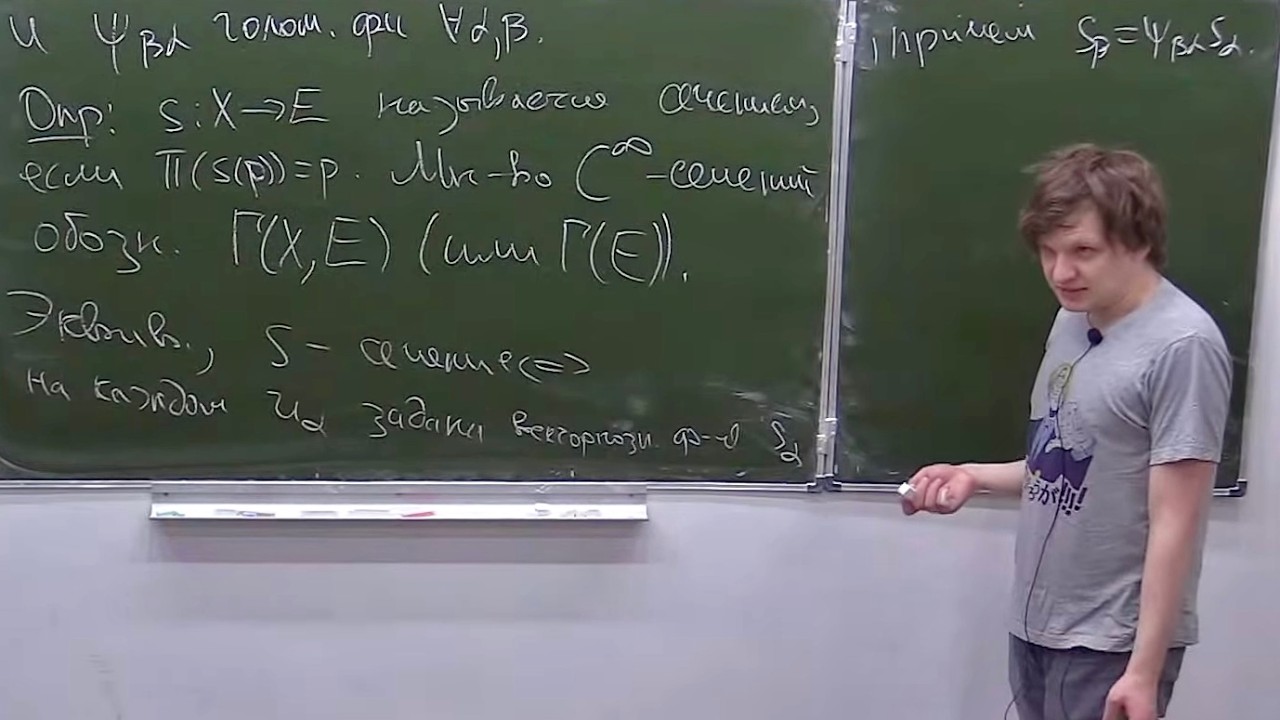 и ψ_βα голом. ф-ии ∀α,β.
Опр: s: X→E называется сечением,
если π(s(p))=p. Мн-во C^∞-сечений
обозн. Γ(X,E) (или Γ(E)).
Эквив., s – сечение <=>
на каждом U_α задана векторнозн. ф-я s_α
, причем s_β=ψ_βα s_α.
!!!